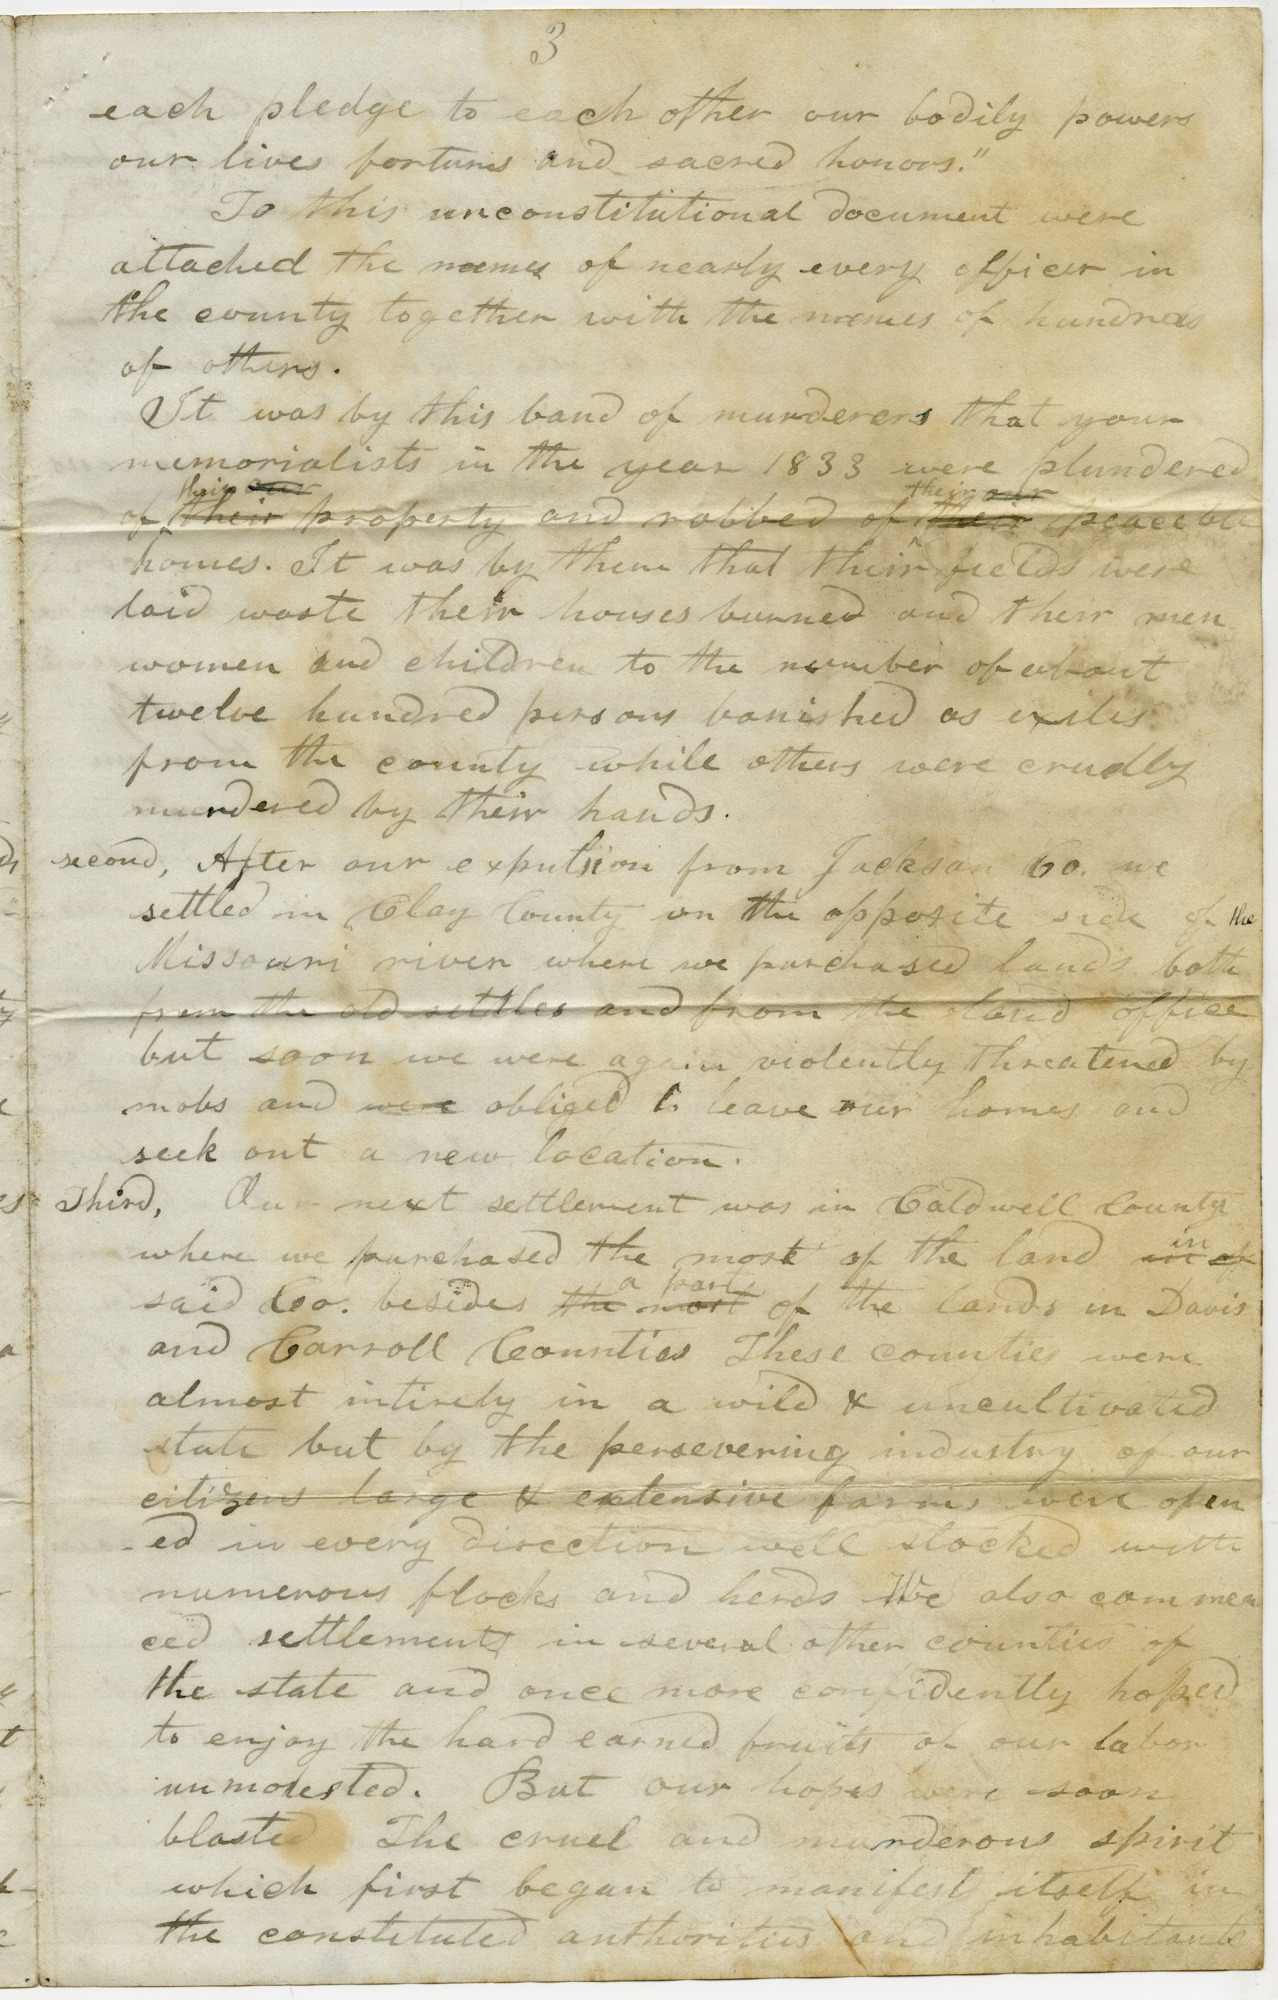 3
each pledge to each other our bodily powers
our lives fortunes and sacred honors."
To this unconstitutional document were
attached the names of nearly every officer in
the county together with the names of hundreds
of others.
It was by this band of murderers that your
memorialists in the year 1833 were plundered
their our their our
of their property and robbed of their peaceble
homes. It was by them that their fields were
laid waste their houses burned and their men
women and children to the number of about
twelve hundred persons banished as exiles
from the county while others were cruelly
murdered by their hands.
second, After our expulsion from Jackson Co. we
settled in Clay County on the opposite side of the
Missouri river where we purchased lands both
from the old settles and from the land office
but soon we were again violently threatened by
mobs and were obliged to leave our homes and
seek out a new location.
Third, Our next settlement was in Caldwell County
in
where we purchased the most of the land in of
a part
said Co. besides the most of the lands in Davis
and Carroll Counties These counties were
almost intirely in a wild & uncultivated
state but by the persevering industry of our
citizens large & extensive farms were open
-ed in every direction well stocked with
numerous flocks and herds We also commen
ced settlements in several other counties of
the state and once more confidently hoped
to enjoy the hard earned fruits of our labor
unmolested. But our hopes were soon
blasted The cruel and murderous spirit
which first began to manifest itself in
the constituted authorities and inhabitants